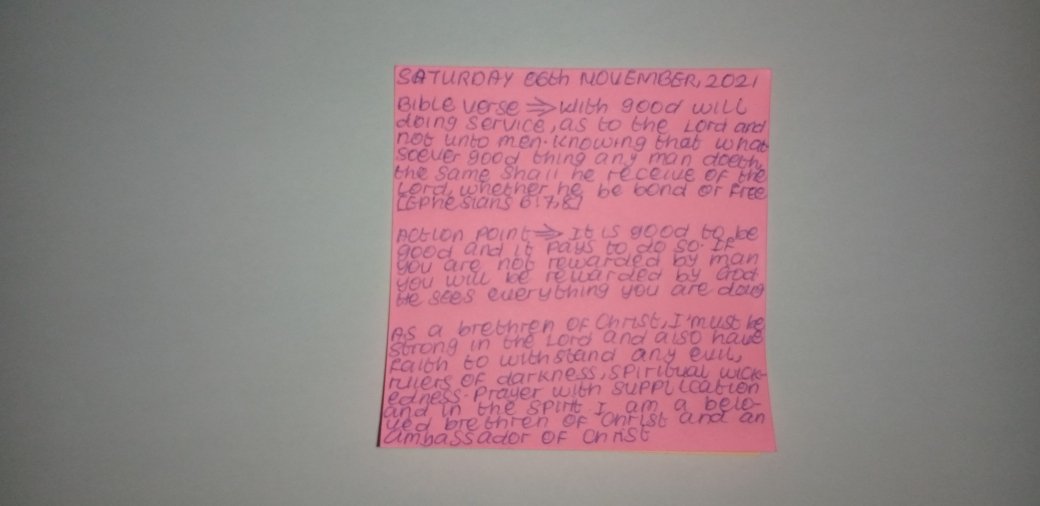 SATURDAY 06th NOVEMBER, 2021
Bible verse ⇒ With good will
doing service, as to the Lord and
not unto men. Knowing that what
soever good thing any man doeth,
the same shall he receive of the
Lord, whether he be bond or free
[Ephesians 6:7,8]
Action Point ⇒ It is good to be
good and it pays to do so. If
you are not rewarded by man
you will be rewarded by God.
He sees everything you are doing
As a brethren of Christ, I must be
strong in the Lord and also have
faith to withstand any evil,
rulers of darkness, spiritual wick-
edness. Prayer with supplication
and in the spirit I am a belo-
ved brethren of Christ and an
ambassador of Christ